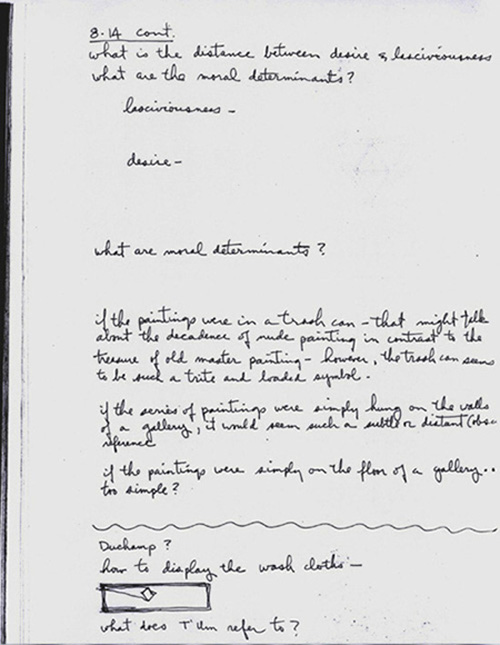 8.14 cont.
what is the distance between desire & lasciviousness
what are the moral determinants?
lasciviousness –
desire –
what are moral determinants?
if the paintings were in a trash can – that might talk
about the decadence of nude painting in contrast to the
treasure of old master painting – however, the trash can seems
to be such a trite and loaded symbol.
if the series of paintings were simply hung on the walls
of a gallery, it would seem such a subtle or distant (obsc
reference
if the paintings were simply on the floor of a gallery..
too simple?
Duchamp?
how to display the wash cloths –
what does T'Um refer to?